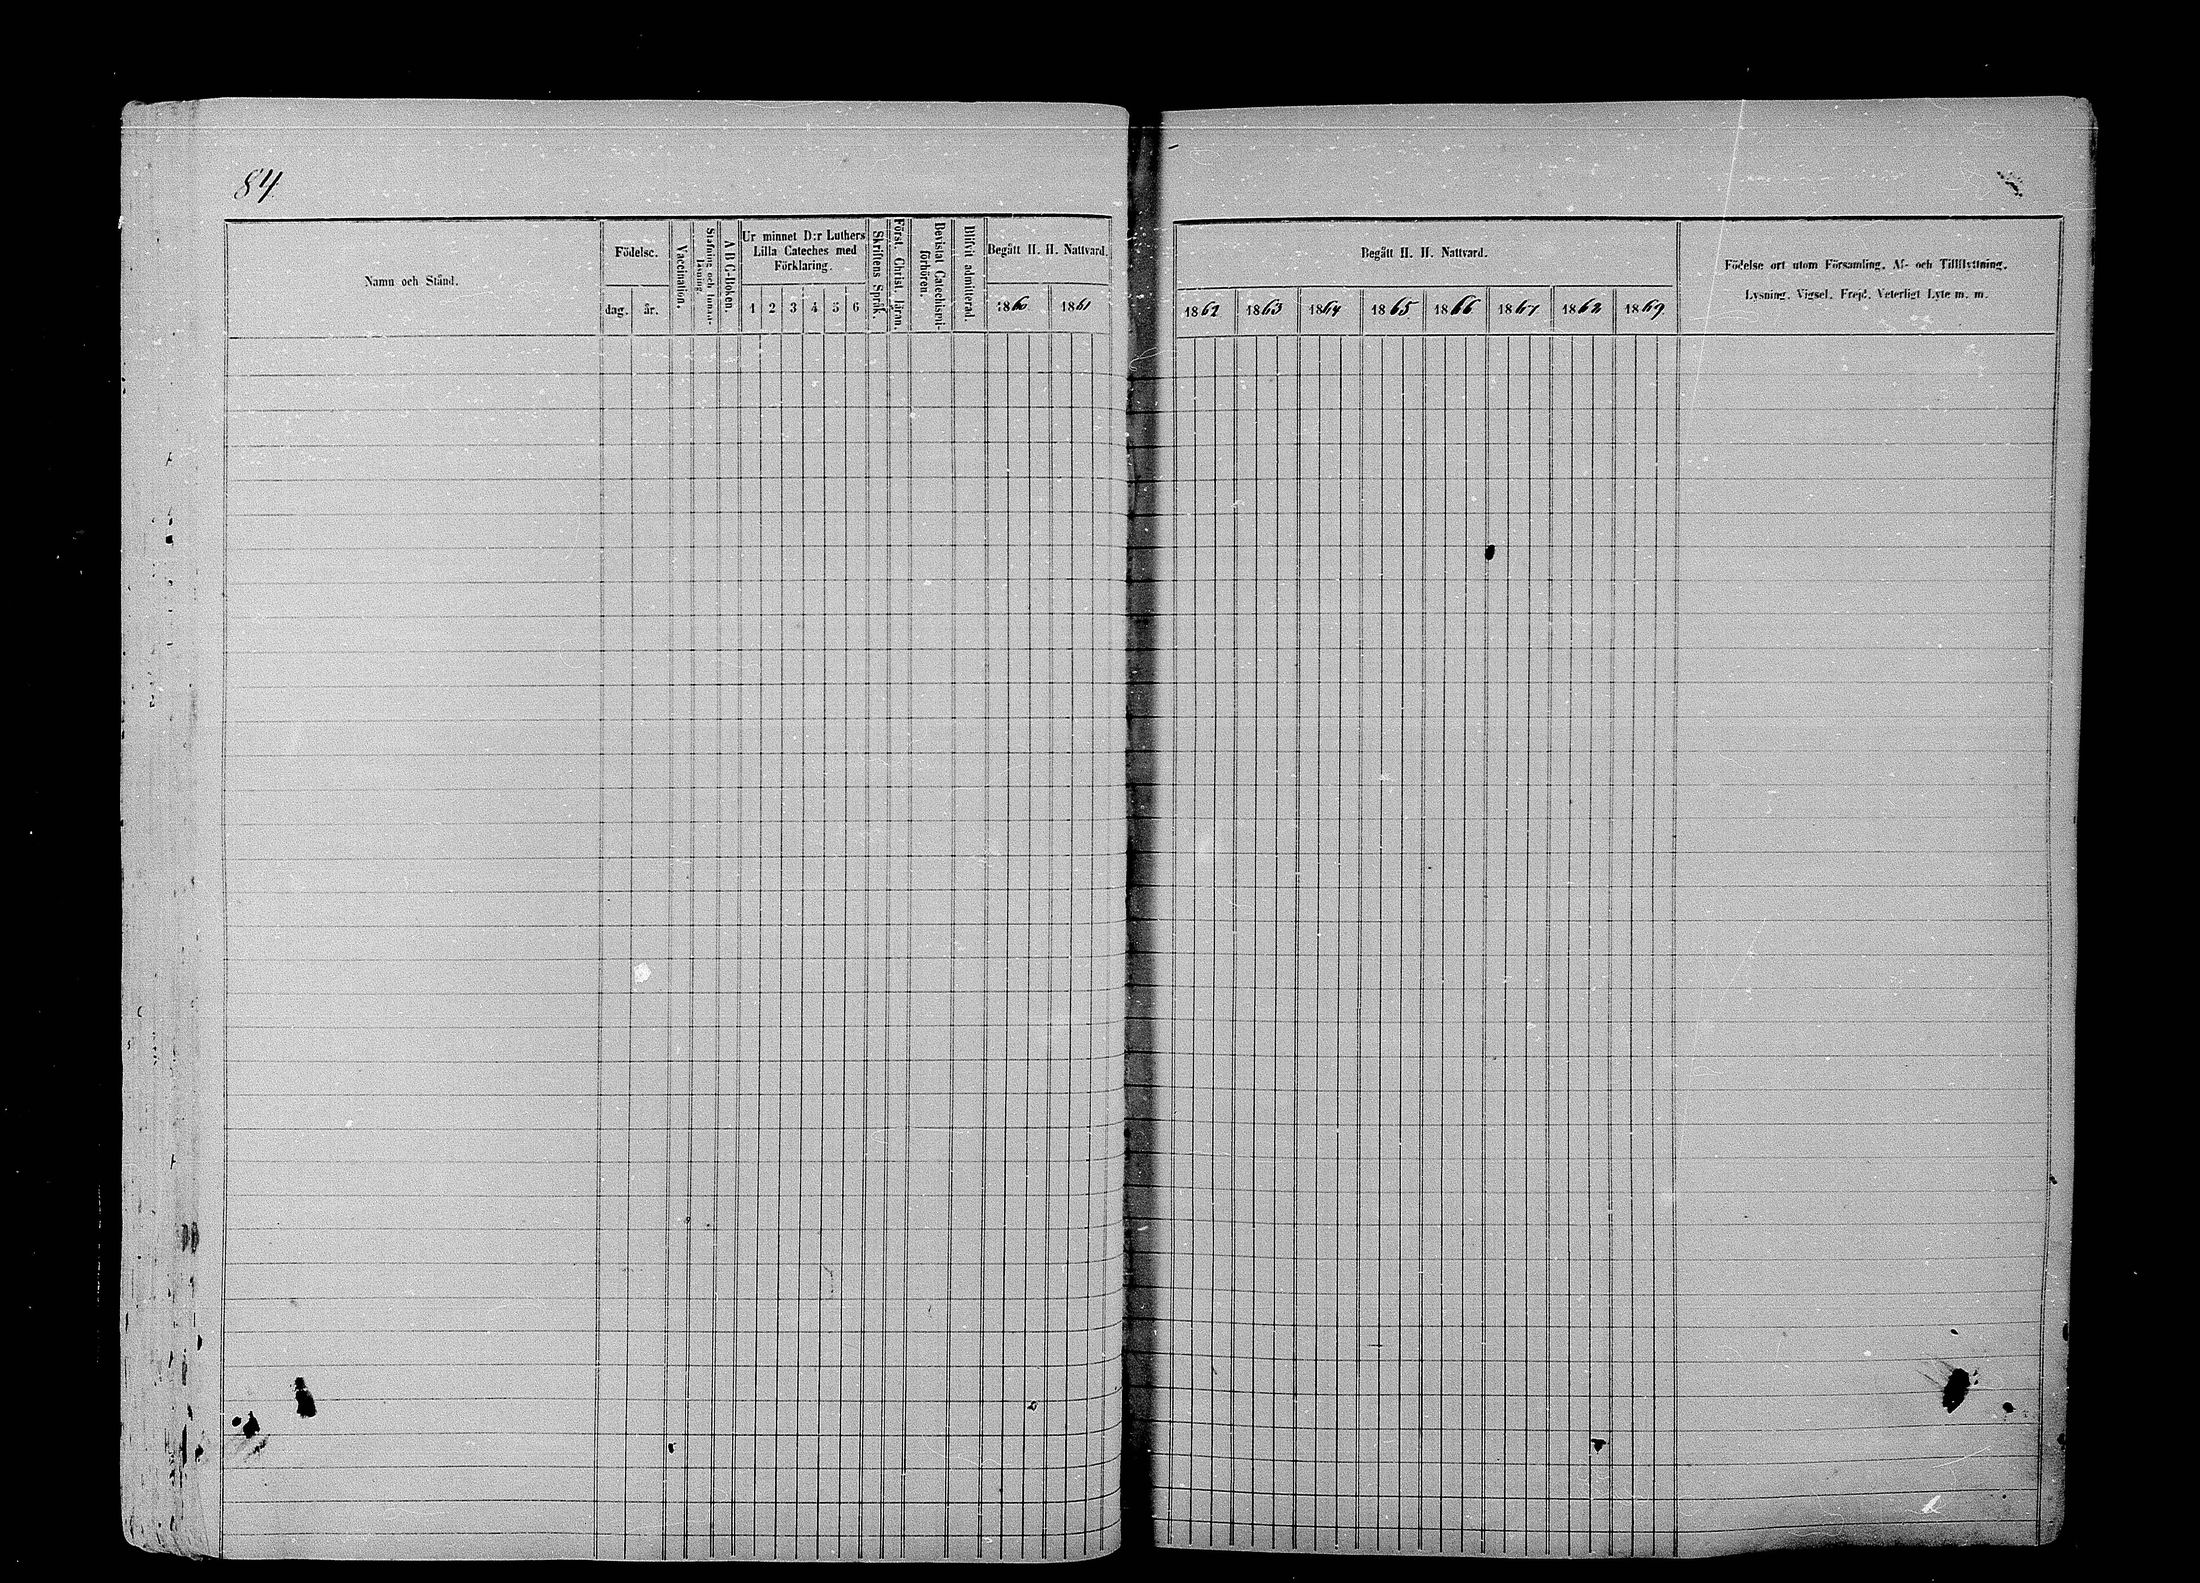 84.
Namn och Stånd.
Födelse.
dag.
år.
Vaccination.
Stafning och Innan-
läsning.
A B C-Boken.
Ur minnet D:r Luthers
Lilla Cateches med
Förklaring.
1 2 3 4 5 6
Skriftens Språk.
Först. Christ. läran.
Bevistat Catechismi-
förhören.
Blifvit admitterad.
Begått H. H. Nattvard.
1860 1861
Begått H. H. Nattvard.
1862 1863 1864 1865 1866 1867 1862 1869
Födelse ort utom Församling. Af- och Tillflyttning.
Lysning. Vigsel. Frejd. Veterligt Lyte m. m.